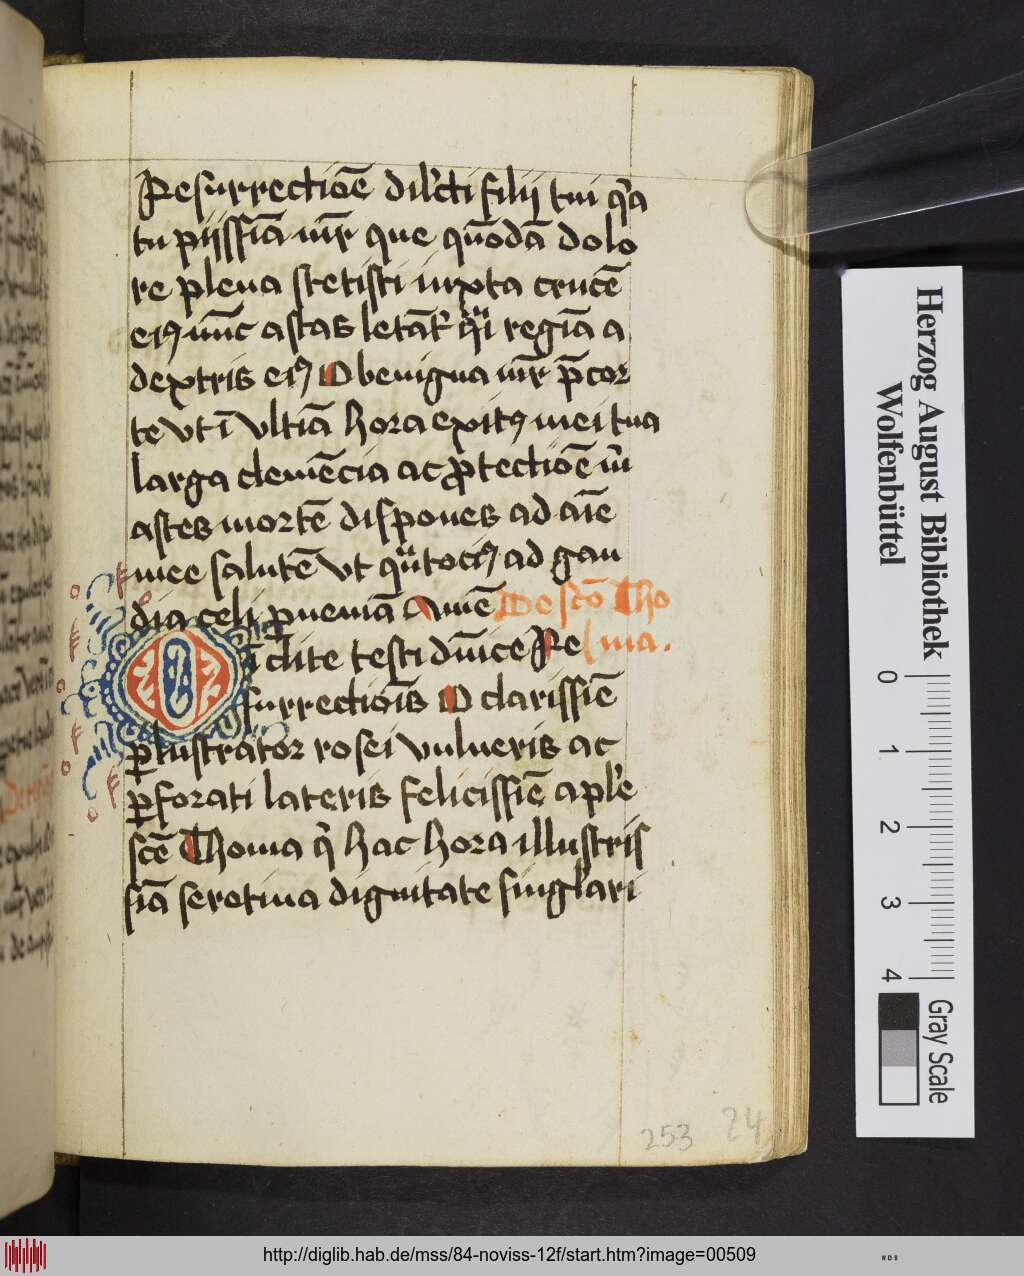 Resurrectiōe dil̄cti filij tui q̄a
tu pijssīa mr̄ que quōdā dolo
re plena stetisti iuxta crucē
eiꝯ nūc astas letāt᷑ qͥi regīa a
dextris eiꝯ O benigna mr̄ p̄cor
te vt ī vltīa hora exitꝯ mei tua
larga clemēcia ac ꝓtectiōe m̄
astes mortē dispones ad aīe
mee salutē vt tociꝯ ad gau
dia celi ꝑueniā Amē De sctō Tho
ma.
O īclite testi dn̄ice Re
surrectiōīs O clarissīe
ꝑlustrator rosei vulneris ac
ꝑforati lateris felicissīe apl̄e
scē Thoma q̄ hac hora illustris
sīa serotina dignitate singl̄ari
253 24
Herzog August Bibliothek
Wolfenbüttel
0 1 2 3 4
Gray Scale
http://diglib.hab.de/mss/84-noviss-12f/start.htm?image=00509